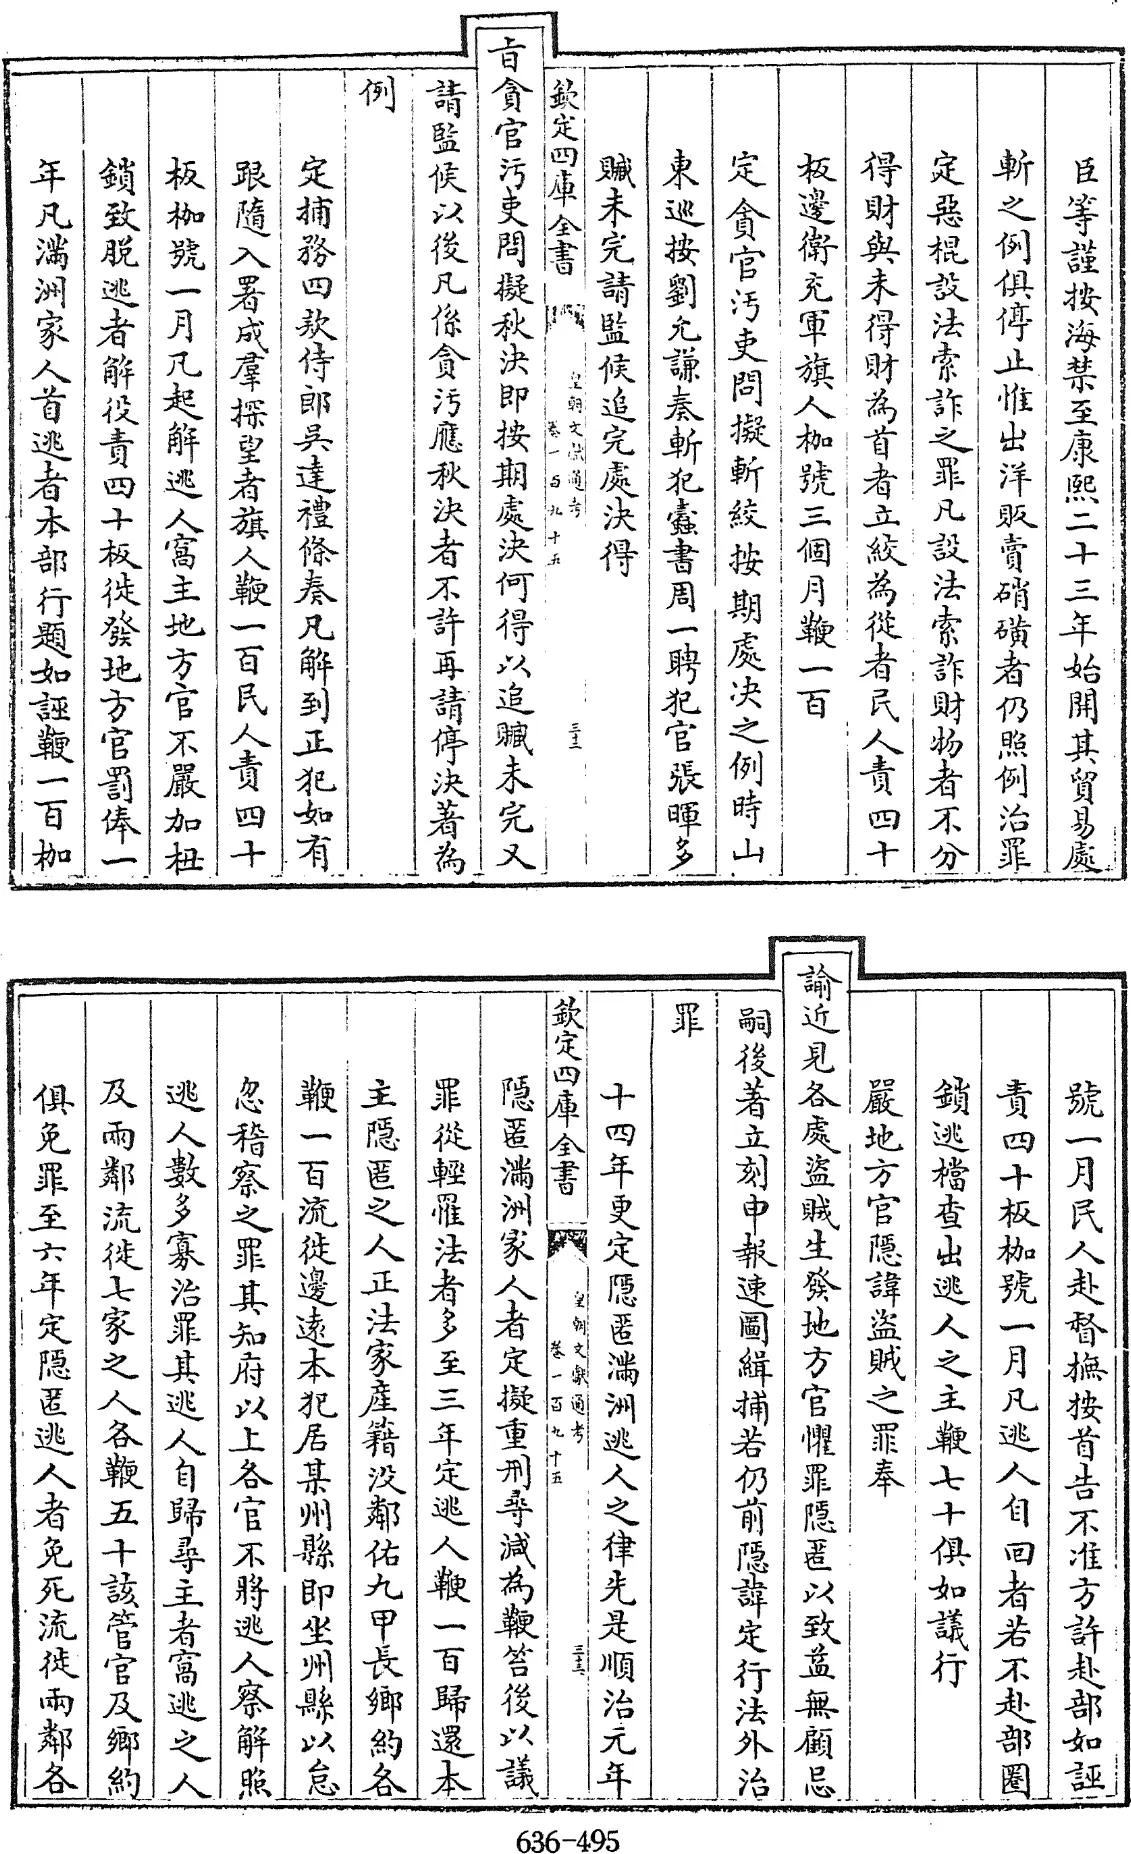 臣等謹按海禁至康熙二十三年始開其貿易處
斬之例俱停止惟出洋販賣硝磺者仍照例治罪
定惡棍設法索詐之罪凡設法索詐財物者不分
得財與未得財為首者立絞為從者民人責四十
板邊衛充軍旗人枷號三個月鞭一百
定貪官汚吏問擬斬絞按期處決之例時山
東巡按劉允謙奏斬犯蠹書周一聘犯官張暉多
贓未完請監候追完處決得
欽定四庫全書
皇朝文獻通考
卷一百九十五
三十二
旨貪官汚吏問擬秋決即按期處決何得以追贓未完又
請監候以後凡係貪汚應秋決者不許再請停決著為
例
定捕務四款侍郎吳達禮條奏凡解到正犯如有
跟隨入署成羣探望者旗人鞭一百民人責四十
板枷號一月凡起解逃人窩主地方官不嚴加杻
鎖致脱逃者解役責四十板徙發地方官罰俸一
年凡滿洲家人首逃者本部行題如誣鞭一百枷
號一月民人赴督撫按首告不准方許赴部如誣
責四十板枷號一月凡逃人自回者若不赴部圈
鎖逃檔查出逃人之主鞭七十俱如議行
嚴地方官隱諱盜賊之罪奉
諭近見各處盜賊生發地方官懼罪隱匿以致益無顧忌
嗣後著立刻申報速圖緝捕若仍前隱諱定行法外治
罪
十四年更定隱匿滿洲逃人之律先是順治元年
欽定四庫全書
皇朝文獻通考
卷一百九十五
三十三
隱匿滿洲家人者定擬重刑尋減為鞭笞後以議
罪從輕罹法者多至三年定逃人鞭一百歸還本
主隱匿之人正法家產籍没鄰佑九甲長鄉約各
鞭一百流徙邊遠本犯居某州縣即坐州縣以怠
忽稽察之罪其知府以上各官不將逃人察解照
逃人數多寡治罪其逃人自歸尋主者窩逃之人
及兩鄰流徙七家之人各鞭五十該管官及鄉約
俱免罪至六年定隱匿逃人者免死流徙兩鄰各
636-495